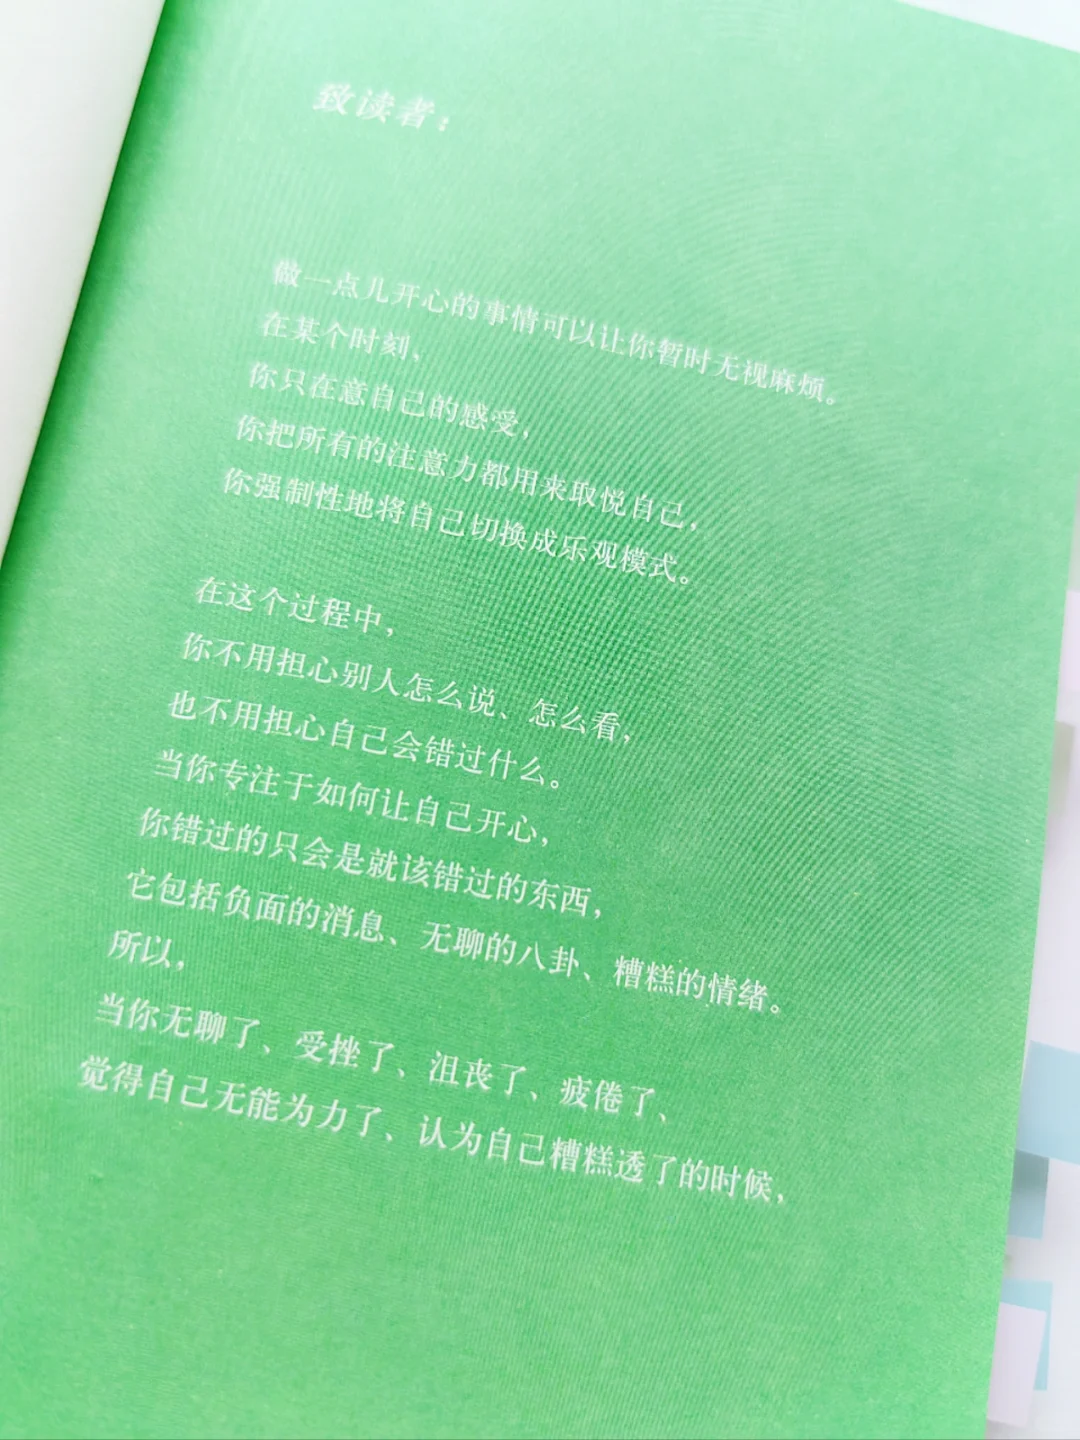 致读者：
做一点儿开心的事情可以让你暂时无视麻烦。
在某个时刻，
你只在意自己的感受，
你把所有的注意力都用来取悦自己，
你强制性地将自己切换成乐观模式。
在这个过程中，
你不用担心别人怎么说、怎么看，
也不用担心自己会错过什么。
当你专注于如何让自己开心，
你错过的只会是就该错过的东西，
它包括负面的消息、无聊的八卦、糟糕的情绪。
所以，
当你无聊了、受挫了、沮丧了、疲倦了、
觉得自己无能为力了、认为自己糟糕透了的时候，